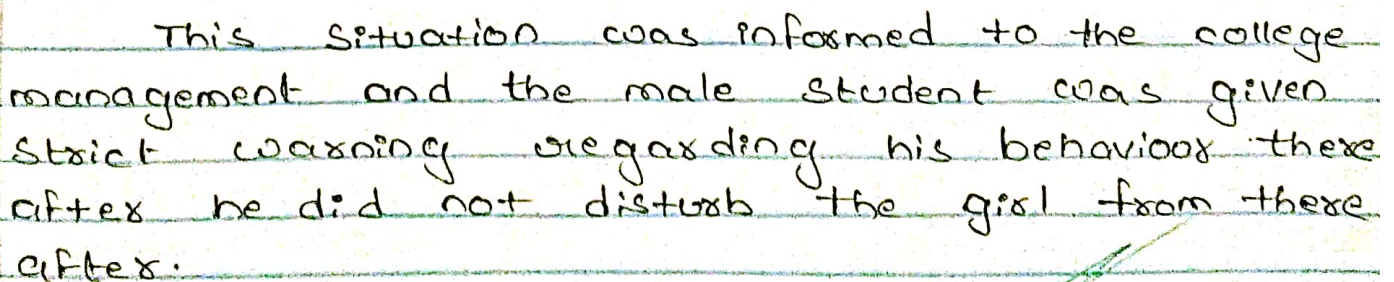 This situation was informed to the college
management and the male student was given
strict warning regarding his behaviour there
after he did not disturb the girl from there
after.